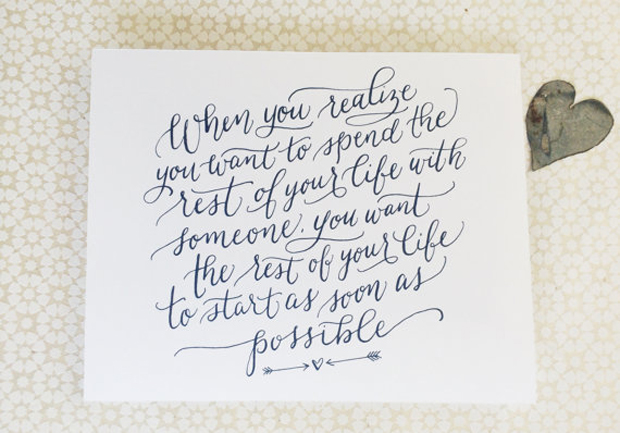 When you realize
you want to spend the
rest of your life with
someone, you want
the rest of your life
to start as soon as
possible